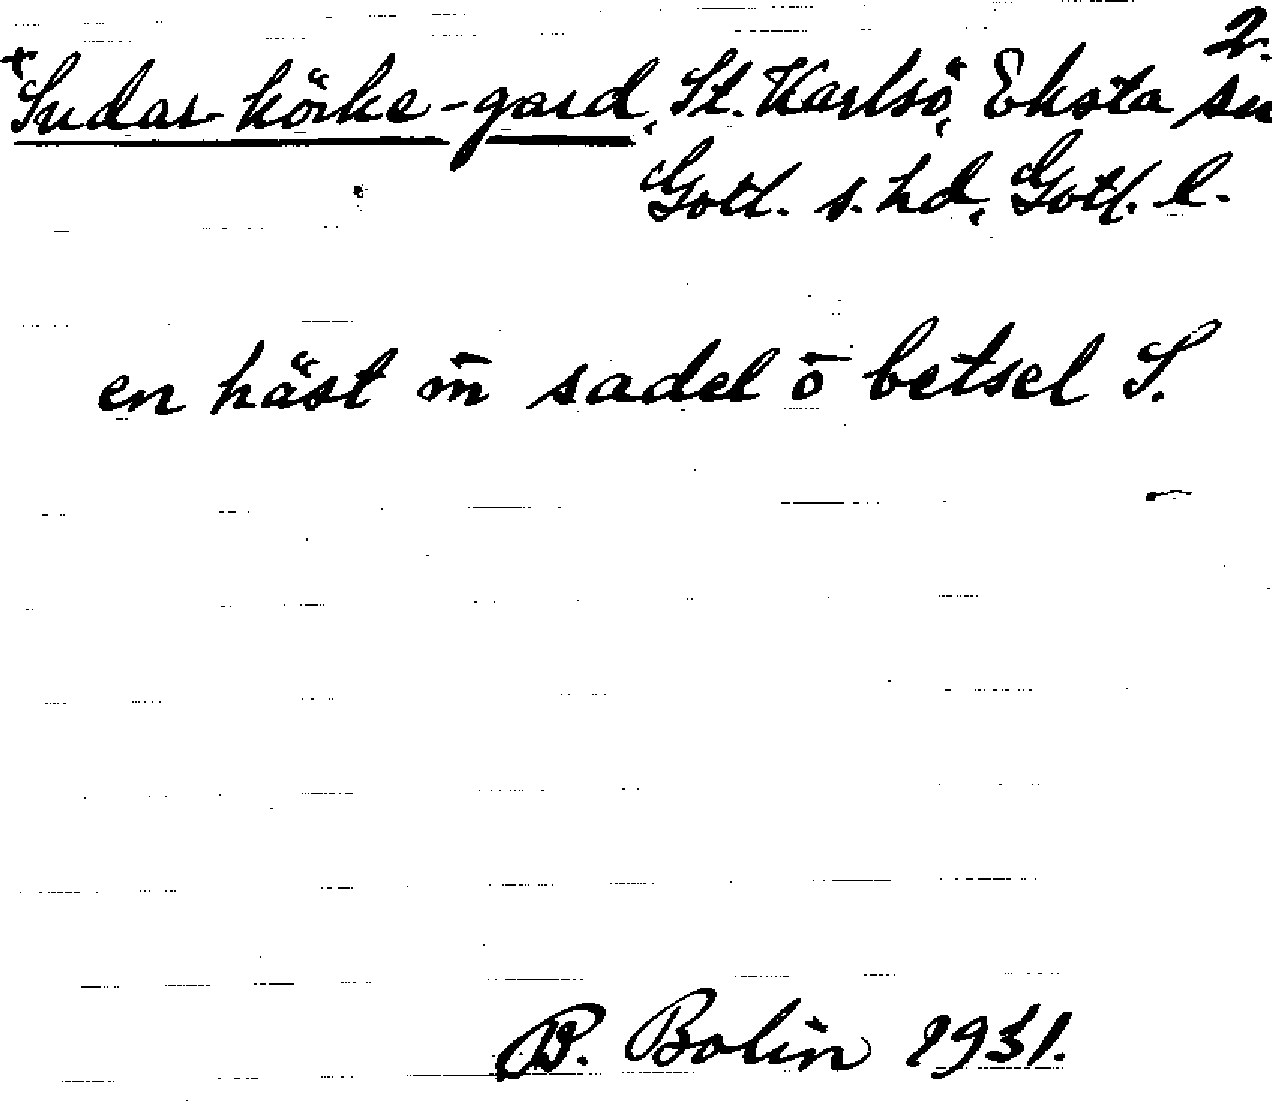 2.
+Sudar körke-gard, St. Karlsö, Eksta sn
Gotl. s. hd, Gotl. l.
en häst m̄ sadel ō betsel S.
B. Bolin 1931.